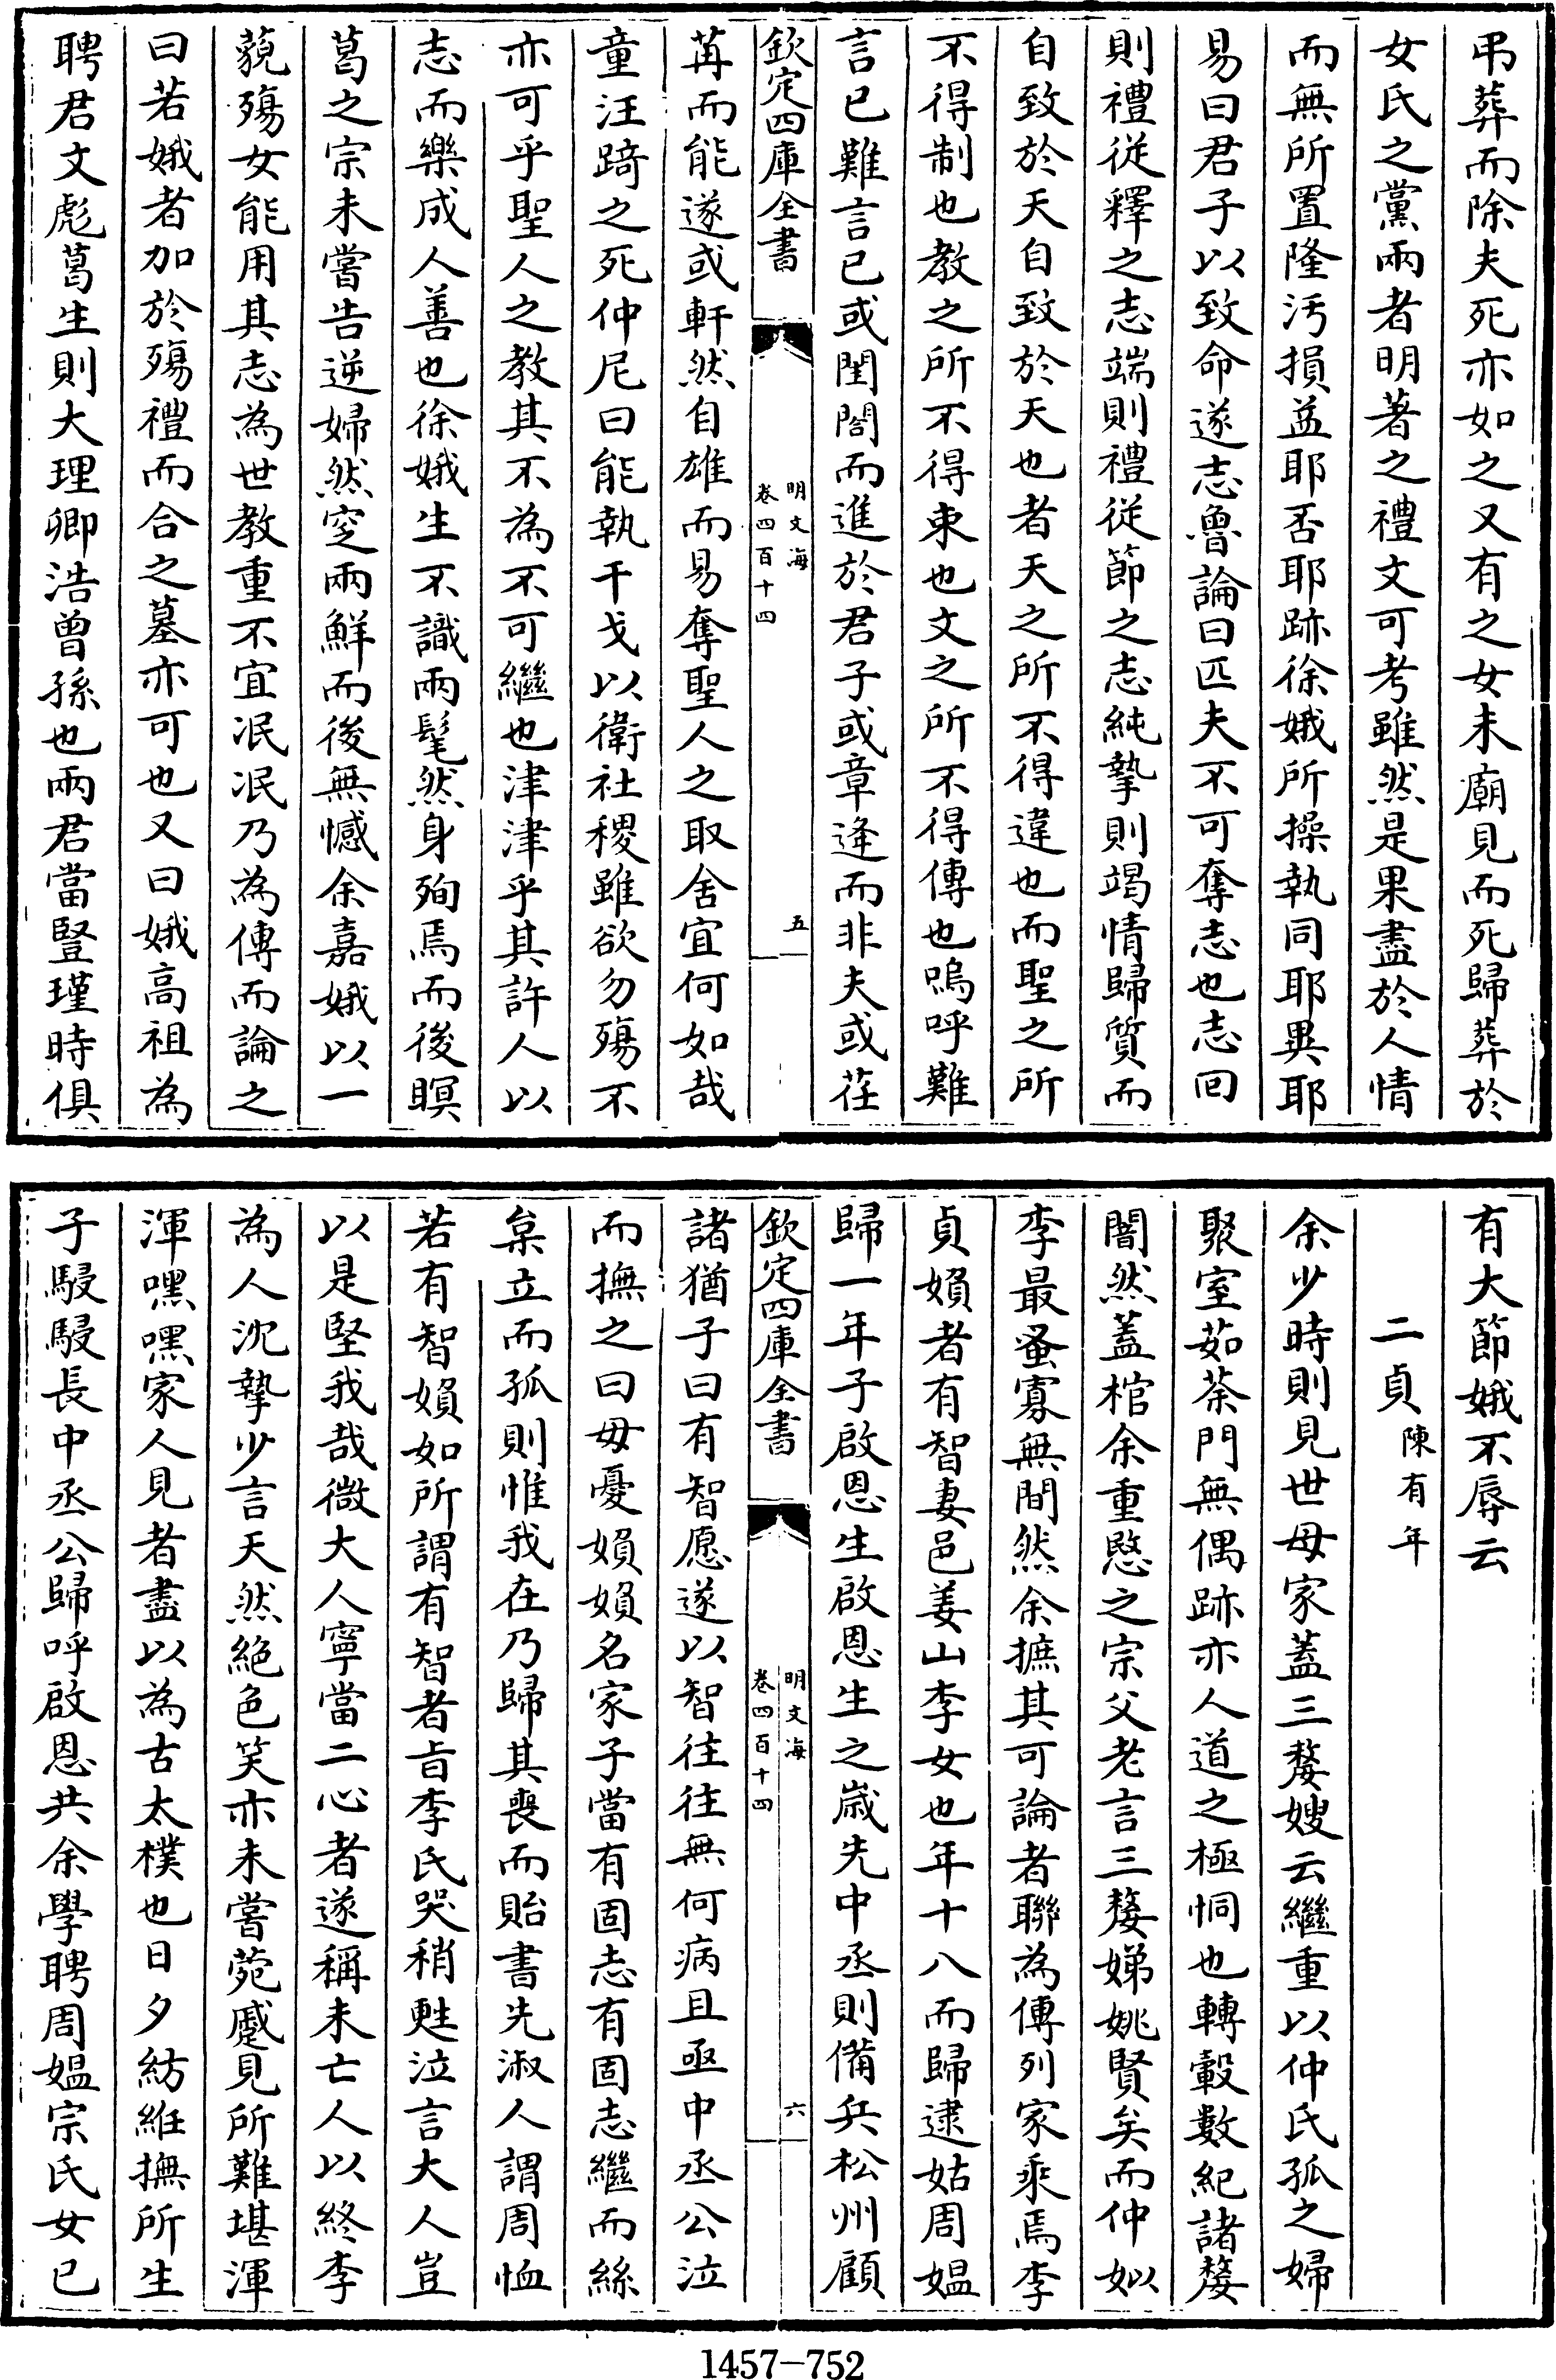 弔葬而除夫死亦如之又有之女未廟見而死歸葬於
女氏之黨兩者明著之禮文可考雖然是果盡於人情
而無所置隆汚損益耶否耶跡徐娥所操執同耶異耶
易曰君子以致命遂志魯論曰匹夫不可奪志也志回
則禮從釋之志端則禮從節之志純摯則竭情歸質而
自致於天自致於天也者天之所不得違也而聖之所
不得制也教之所不得束也文之所不得傳也嗚呼難
言已難言已或閨閤而進於君子或章逢而非夫或荏
欽定四庫全書
明文海
卷四百十四
五
苒而能遂或軒然自雄而易奪聖人之取舍宜何如哉
童汪踦之死仲尼曰能執干戈以衛社稷雖欲勿殤不
亦可乎聖人之教其不為不可繼也津津乎其許人以
志而樂成人善也徐娥生不識兩髦然身殉焉而後瞑
葛之宗未嘗告逆婦然窆兩鮮而後無憾余嘉娥以一
藐殤女能用其志為世教重不宜泯泯乃為傳而論之
曰若娥者加於殤禮而合之墓亦可也又曰娥高祖為
聘君文彪葛生則大理卿浩曾孫也兩君當豎瑾時俱
有大節娥不辱云
二貞陳有年
余少時則見世母家蓋三嫠嫂云繼重以仲氏孤之婦
聚室茹荼門無偶跡亦人道之極恫也轉轂數紀諸嫠
闇然蓋棺余重愍之宗父老言三嫠娣姚賢矣而仲姒
李最蚤寡無間然余摭其可論者聯為傳列家乘焉李
貞媍者有智妻邑姜山李女也年十八而歸逮姑周媼
歸一年子啟恩生啟恩生之歳先中丞則備兵松州顧
欽定四庫全書
明文海
卷四百十四
六
諸猶子曰有智愿遂以智往往無何病且亟中丞公泣
而撫之曰毋憂媍媍名家子當有固志有固志繼而絲
枲立而孤則惟我在乃歸其喪而貽書先淑人謂周恤
若有智媍如所謂有智者㫖李氏哭稍甦泣言大人豈
以是堅我哉微大人寧當二心者遂稱未亡人以終李
為人沈摯少言天然絕色笑亦未嘗菀慼見所難堪渾
渾嘿嘿家人見者盡以為古太樸也日夕紡維撫所生
子駸駸長中丞公歸呼啟恩共余學聘周媼宗氏女已
1457-752